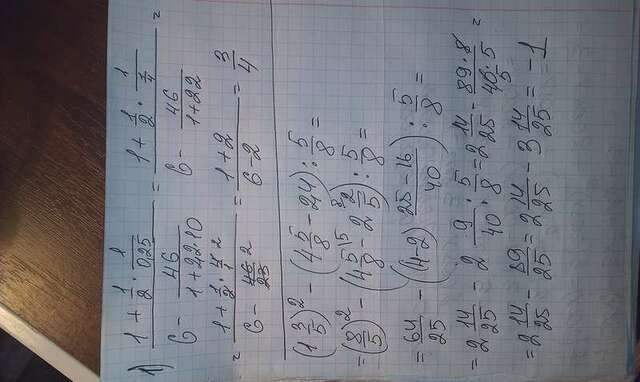 1) (1 + 1/2 · 1/0,25) / (6 - 46/(1+2,2·10)) = (1 + 1/2 · 1/(1/4)) / (6 - 46/(1+22)) =
= (1 + 1/2 · 4/1 2) / (6 - 46/23 2) = (1+2)/(6-2) = 3/4
(1 3/5)² - (4 5/8 - 2,4) : 5/8 =
= (8/5)² - (4 5/8 - 2 2/5) : 5/8 =
= 64/25 - ((4-2) (25-16)/40) : 5/8 =
= 2 14/25 - 2 9/40 : 5/8 = 2 14/25 - 89·8/40·5 =
= 2 14/25 - 89/25 = 2 14/25 - 3 14/25 = -1